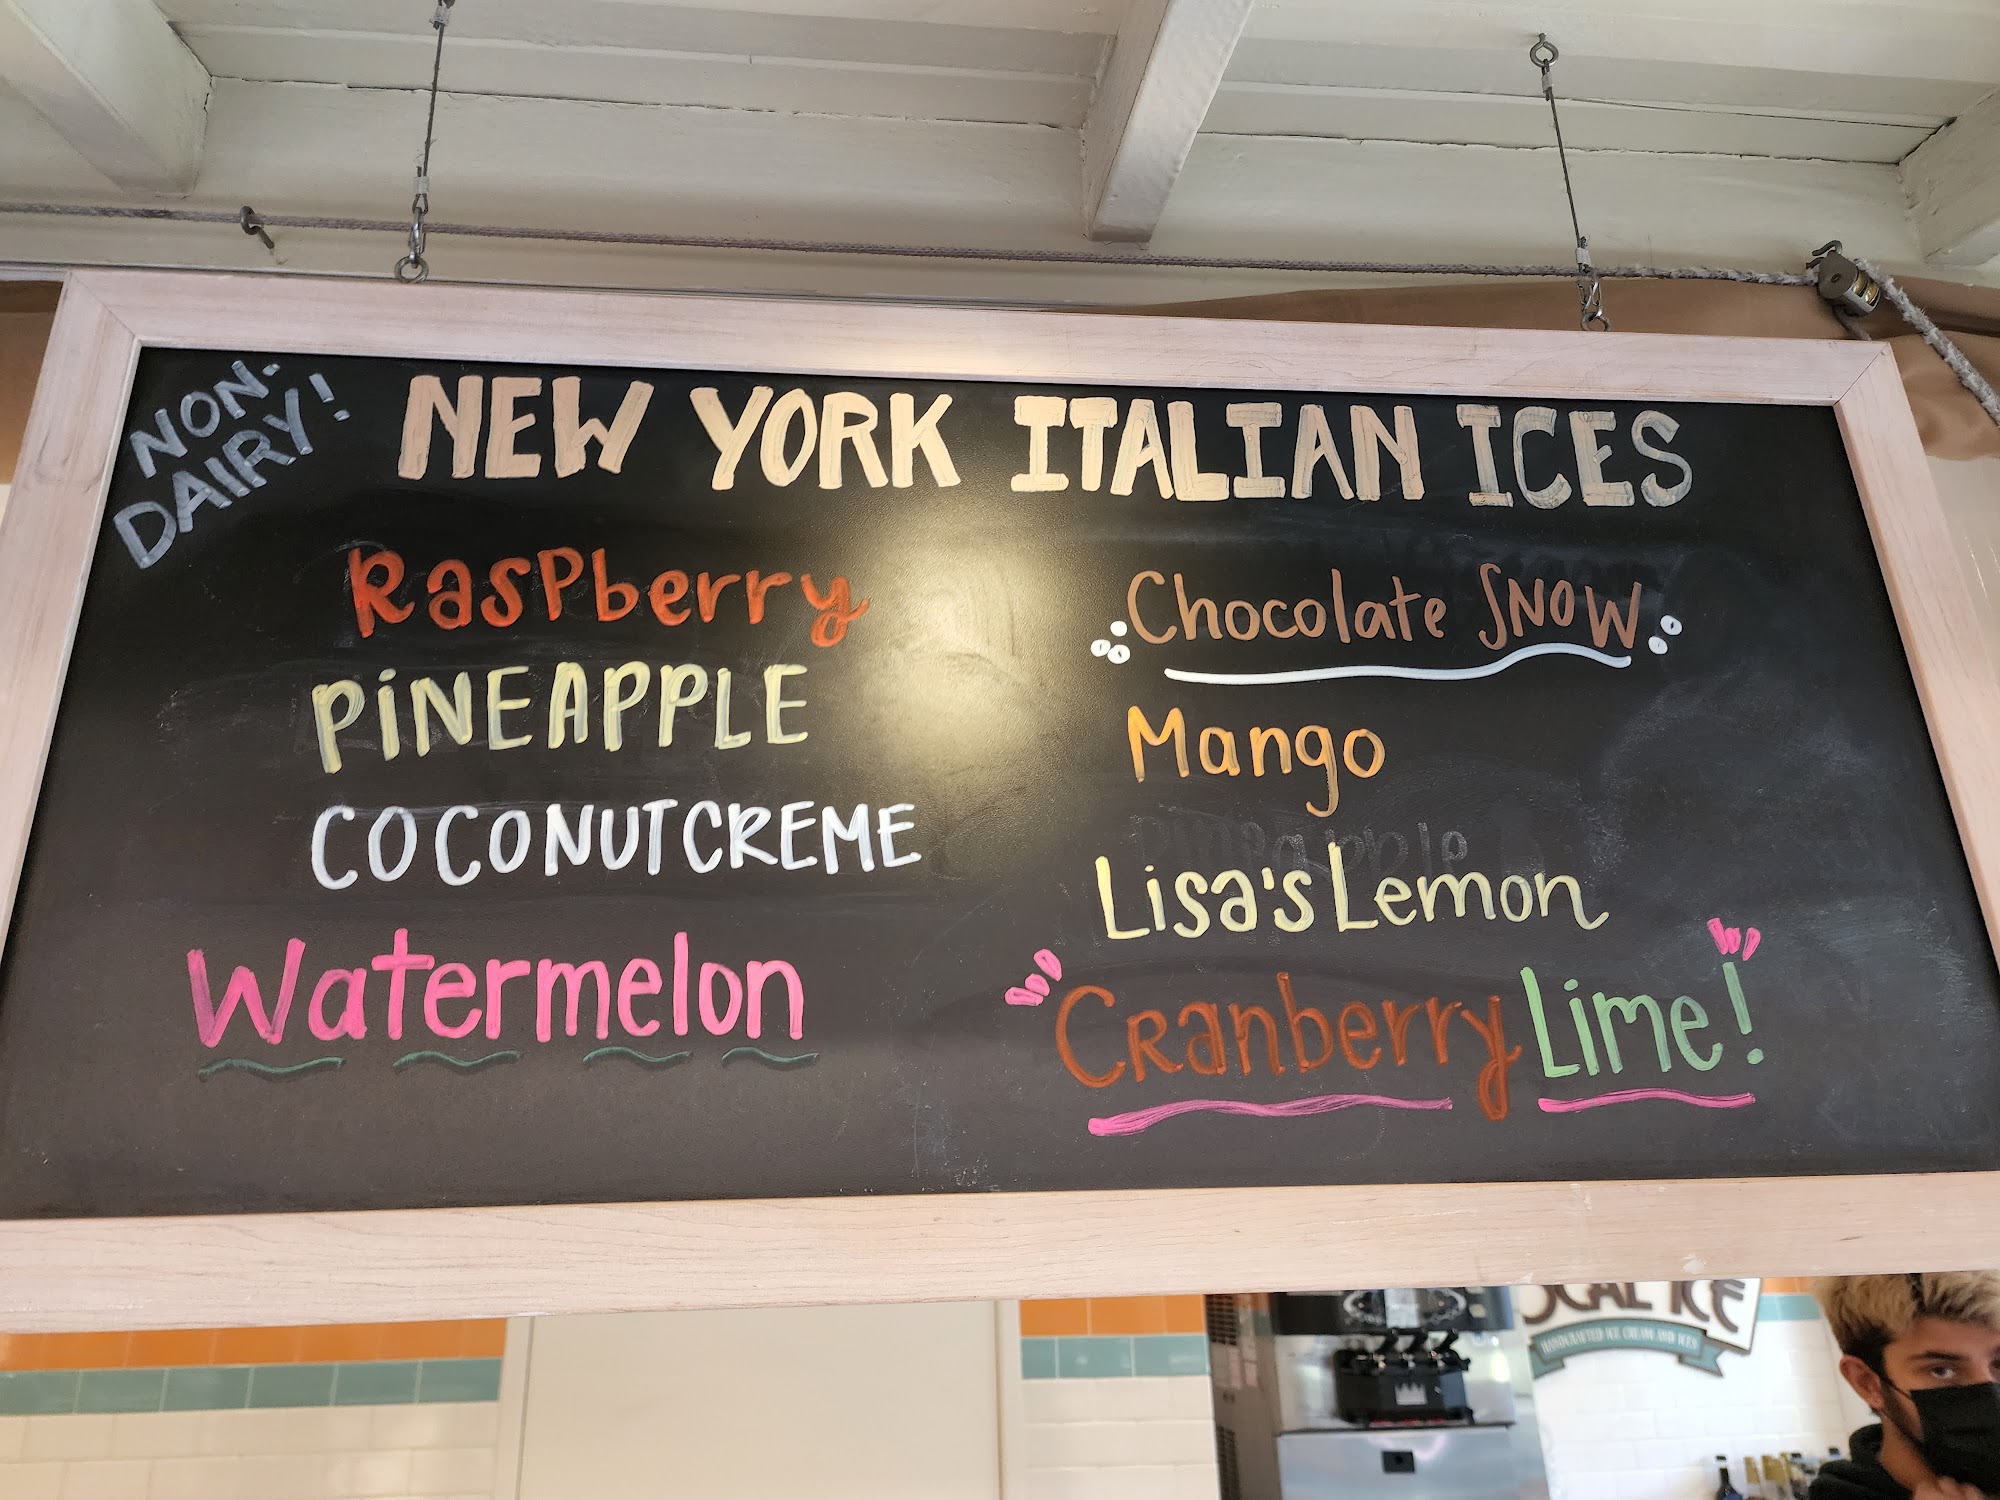 NON-
DAIRY!
NEW YORK ITALIAN ICES
Raspberry
PiNEAPPLE
COCONUT CREME
Watermelon
Chocolate SNOW
Mango
Lisa's Lemon
Cranberry Lime!
OCAL ICE
HANDCRAFTED ICE CREAM AND ICES